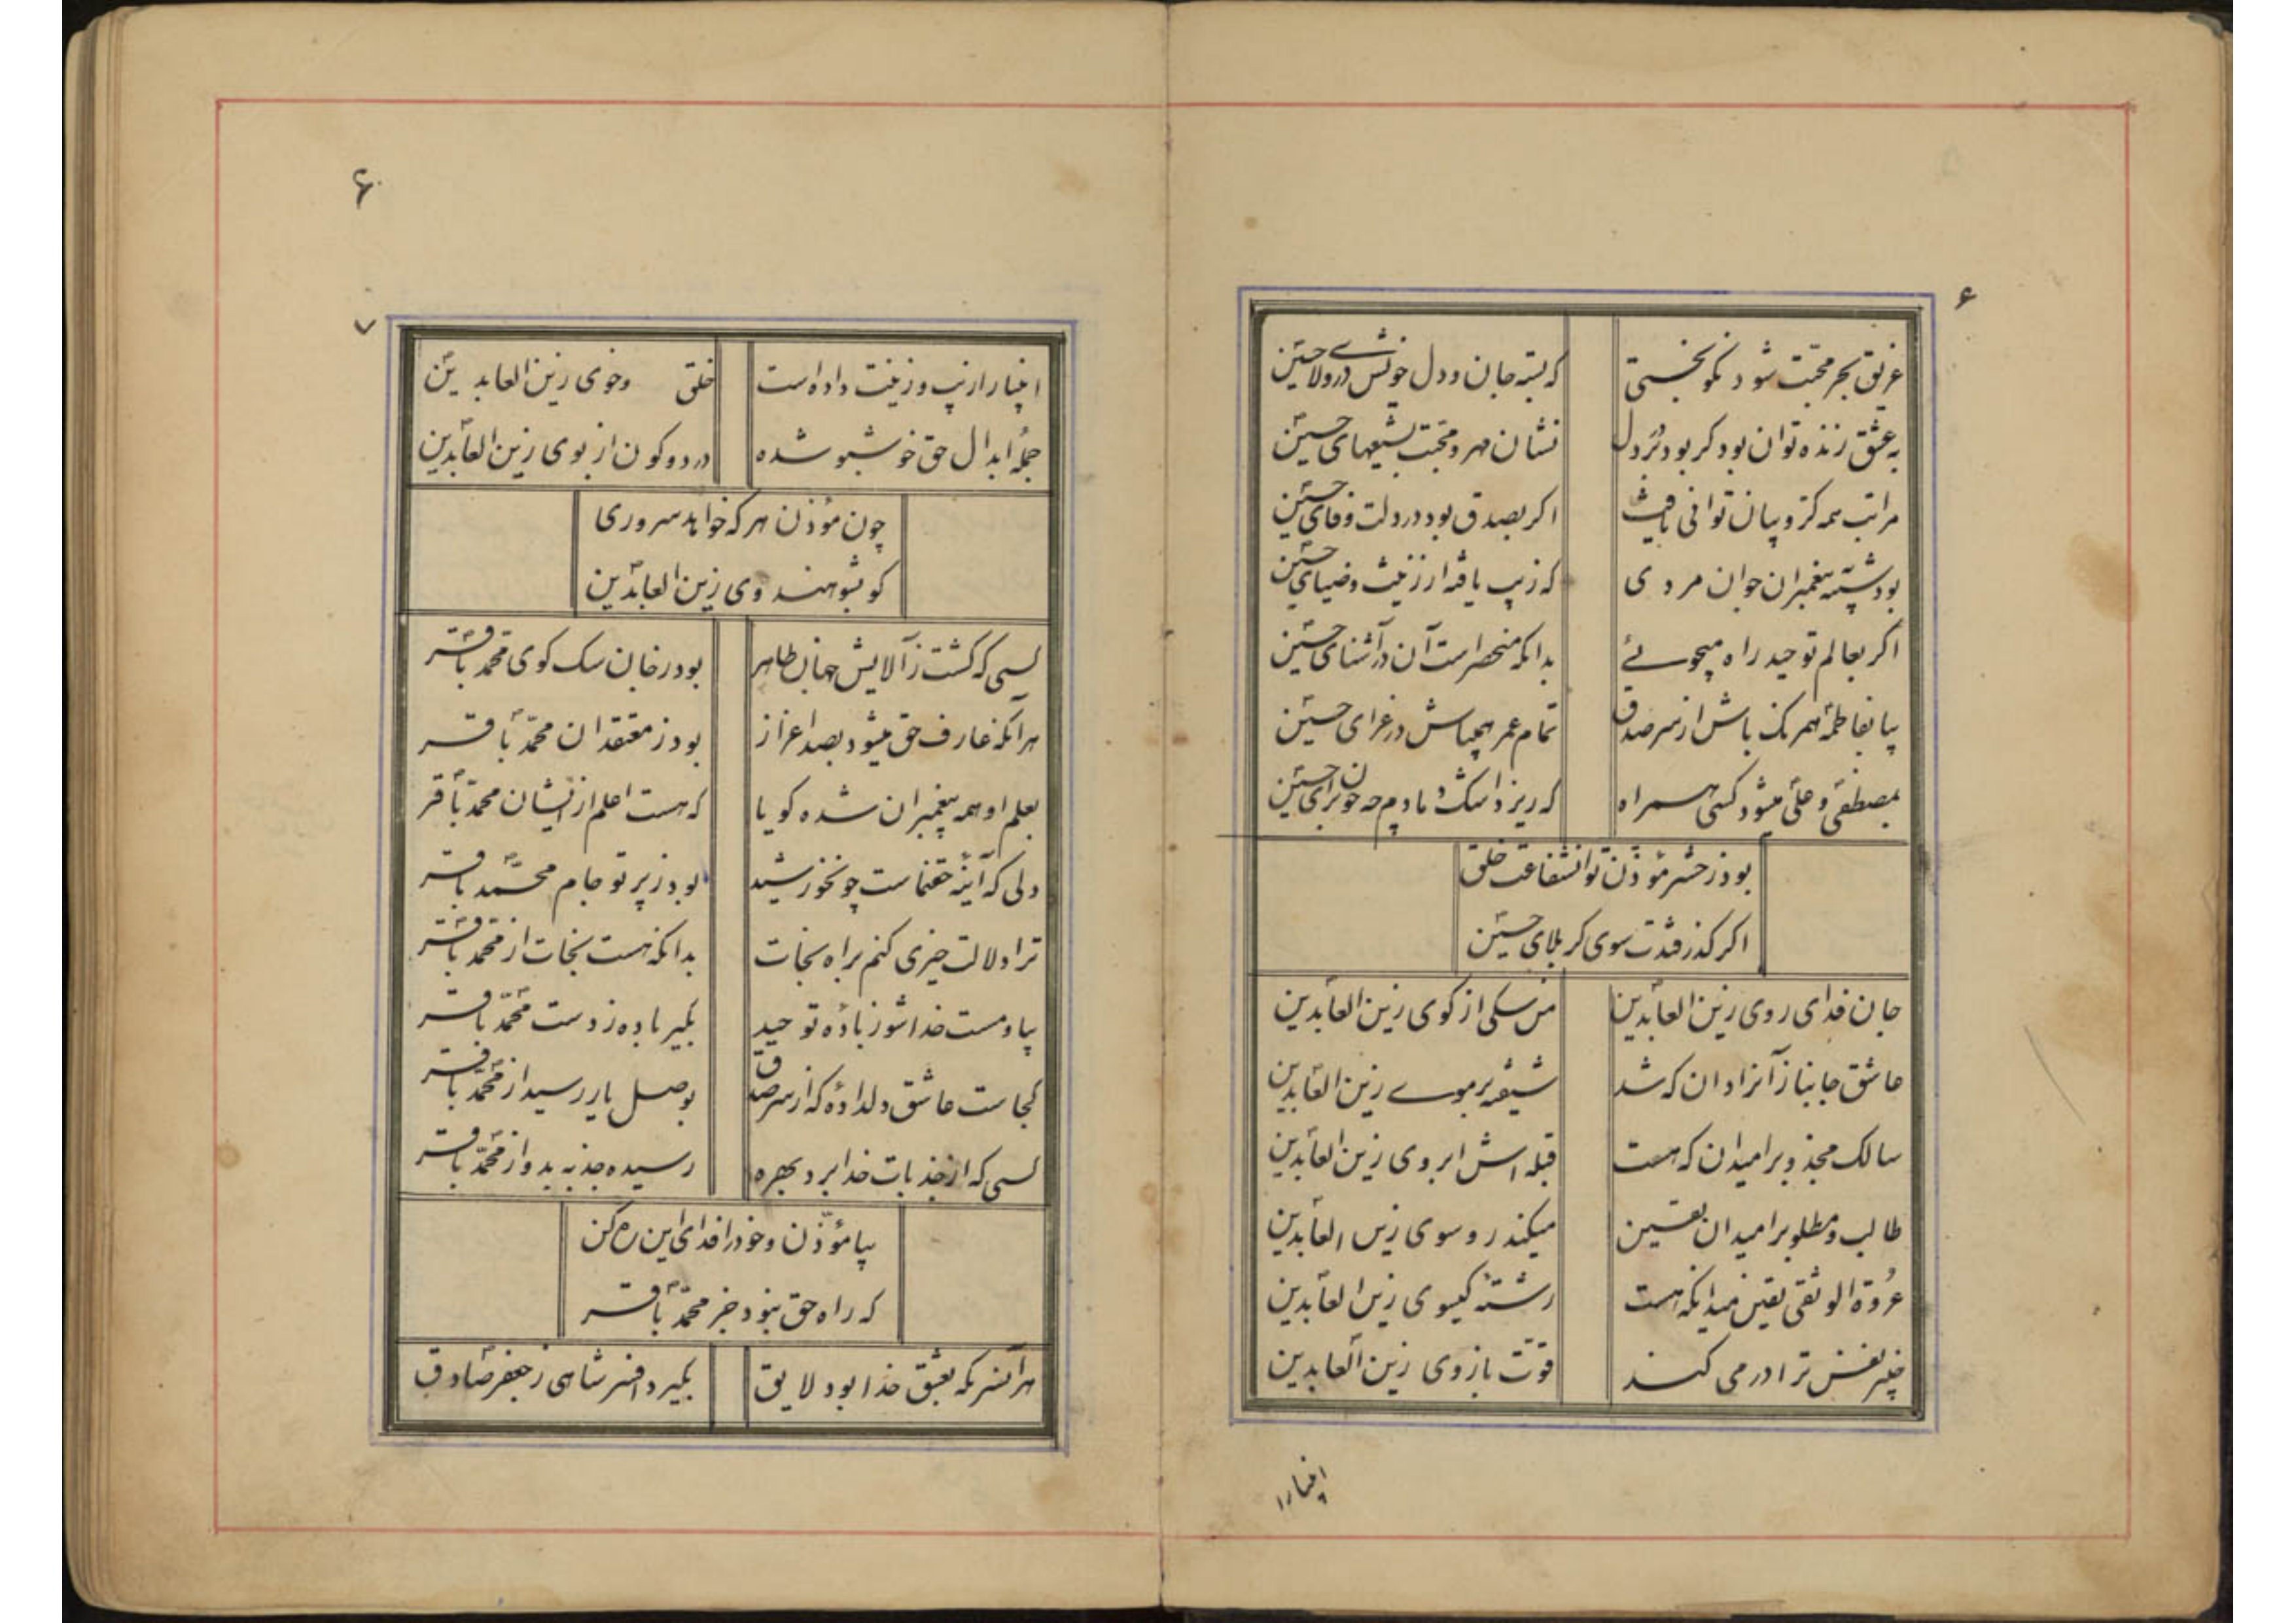 ۶
غریق بحر محبّت شود نکوبختی
که بسته جان و دل خویش در ولای حسین
به عشق زنده توان بود کر بود در دل
نشان مهر و محبّت بشیعهای حسین
مراتب همه کروبیان توانی یافت
اکر بصدق بود در دلت وفای حسین
بود شبیه پیغمبران جوان مردی
که زیب یافته از زینت و ضیای حسین
اکر بعالم توحید راه میجوئی
بدانکه منحصر است آن در آشنای حسین
بیا بفاطمه همرنک باش از سر صدق
تمام عمر همی باش در عزای حسین
بمصطفی و علی میشود کسی همراه
که ریزد اشک دمادم چه خون برای حسین
بود ز حشر مؤذن توان شفاعت خلق
اکر کذر فتدت سوی کربلای حسین
جان فدای روی زین العابدین
من سکی از کوی زین العابدین
عاشق جانباز آنرا دان که شد
شیفته بر موی زین العابدین
سالک مجذوب را میدان که هست
قبله اش ابروی زین العابدین
طالب و مطلوب را میدان یقین
میکند رو سوی زین العابدین
عروة الوثقی یقین میدانکه هست
رشتهٔ کیسوی زین العابدین
خیبر نفس ترا در می کند
قوّت بازوی زین العابدین
انبیا را
۶
۷
انبیا را زیب و زینت داده است
خلق و خوی زین العابدین
جملهٔ ابدال حق خوشبو شده
در دو کون از بوی زین العابدین
چون مؤذن هر که خواهد سروری
کو بشو هندوی زین العابدین
کسی که کشت ز آلایش جهان طاهر
بود ز خان سک کوی محمّد باقر
هر آنکه عارف حق میشود بصد اعزاز
بود ز معتقدان محمّد باقر
بعلم او همه پیغمبران شده کویا
که هست اعلم از ایشان محمّد باقر
دلی که آینهٔ حقنماست چونخورشید
بود ز پرتو جام محمّد باقر
ترا دلالت خیری کنم براه نجات
بدانکه هست نجات از محمّد باقر
بیا و مست خدا شو ز بادهٔ توحید
بکیر باده ز دست محمّد باقر
کجاست عاشق دلدادهٔ که از سر صدق
بوصل یار رسید از محمّد باقر
کسی که از جذبات خدا برد بهره
رسیده جذبه بدو از محمّد باقر
بیا مؤذّن و خود را فدای این ره کن
که راه حق نبود جز محمّد باقر
هر آنسریکه بعشق خدا بود لایق
بکیرد افسر شاهی ز جعفر صادق